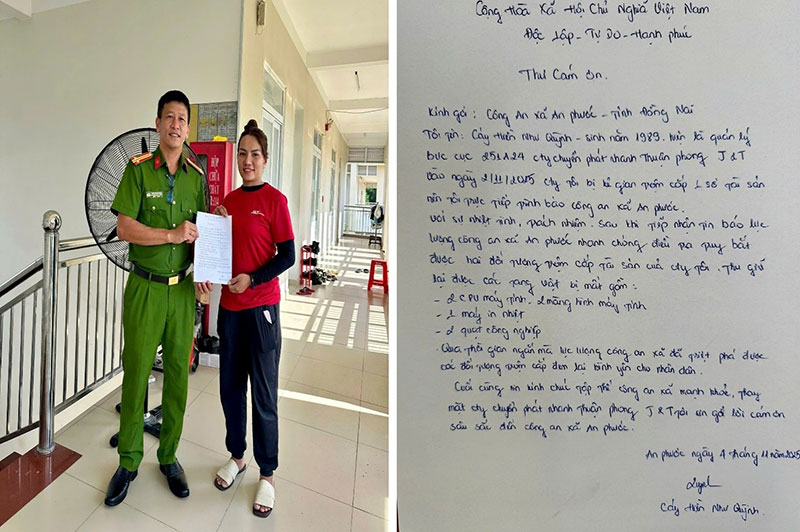 HỘP
CHỮA
CHÁY
Cộng Hòa Xã Hội Chủ Nghĩa Việt Nam
Độc Lập - Tự Do - Hạnh phúc
Thư Cảm ơn.
Kính gởi : Công An xã An phước - Tỉnh Đồng Nai
Tôi tên : Cáy Hiền Như Quỳnh - sinh năm 1989. hiện là quản lý
bưu cục 251A24 cty chuyển phát nhanh Thuận phong J&T
vào ngày 2/11/2025 cty tôi bị kẻ gian trộm cắp 1 số tài sản
nên tôi trực tiếp trình báo công an xã An phước.
Với sự nhiệt tình, trách nhiệm. sau khi tiếp nhận tin báo lực
lượng công an xã An phước nhanh chóng điều tra truy bắt
được hai đối tượng trộm cắp tài sản của cty tôi. Thu giữ
lại được các tang vật bị mất gồm :
- 2 CPU máy tính. 2 màng hình máy tính
- 1 máy in nhiệt
- 2 quạt công nghiệp
Qua thời gian ngắn mà lực lượng công an xã đã triệt phá được
các đối tượng trộm cắp đem lại bình yên cho nhân dân.
Cuối cùng xin kính chúc tập thể công an xã mạnh khỏe, thay
mặt cty chuyển phát nhanh Thuận phong J&T tôi xin gởi lời cảm ơn
sâu sắc đến công an xã An phước.
An phước ngày 4 tháng 11 năm 2025
Cáy Hiền Như Quỳnh.